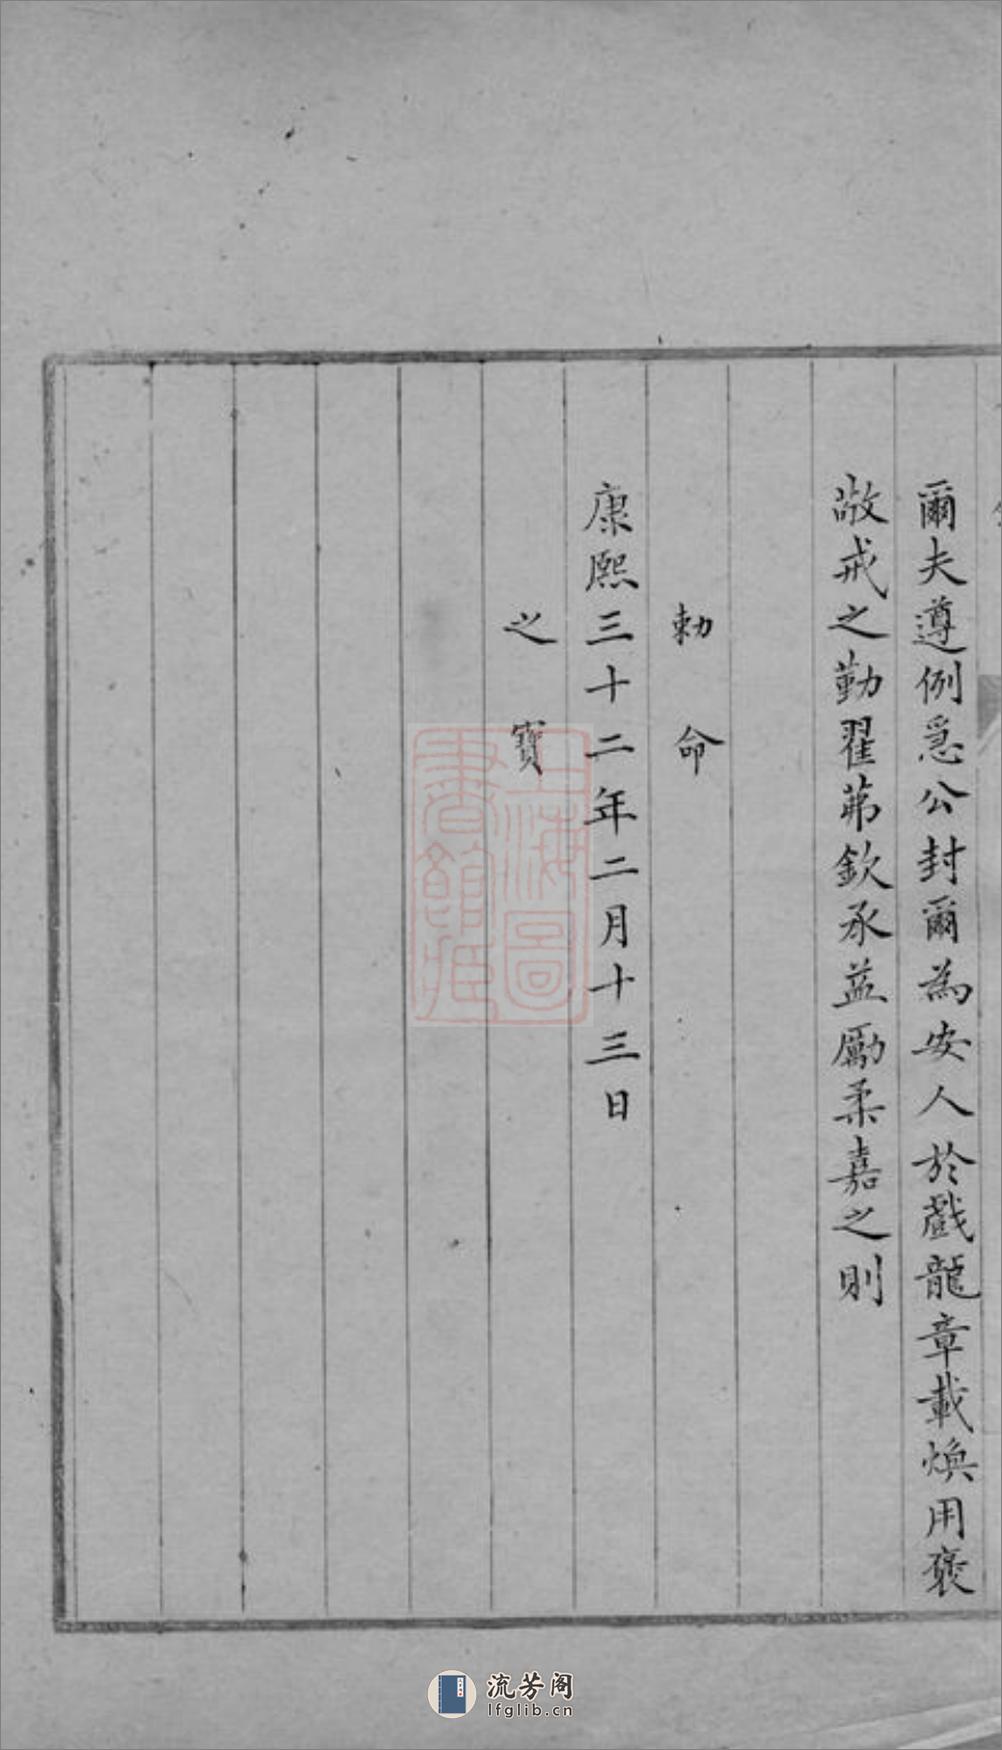 爾夫遵例急公封爾為安人於戲龍章載煥用褒
敬戒之勤翟茀欽承益勵柔嘉之則
勅命
康熙三十二年二月十三日
之寶
上海圖
書館藏
流芳阁
lfglib.cn